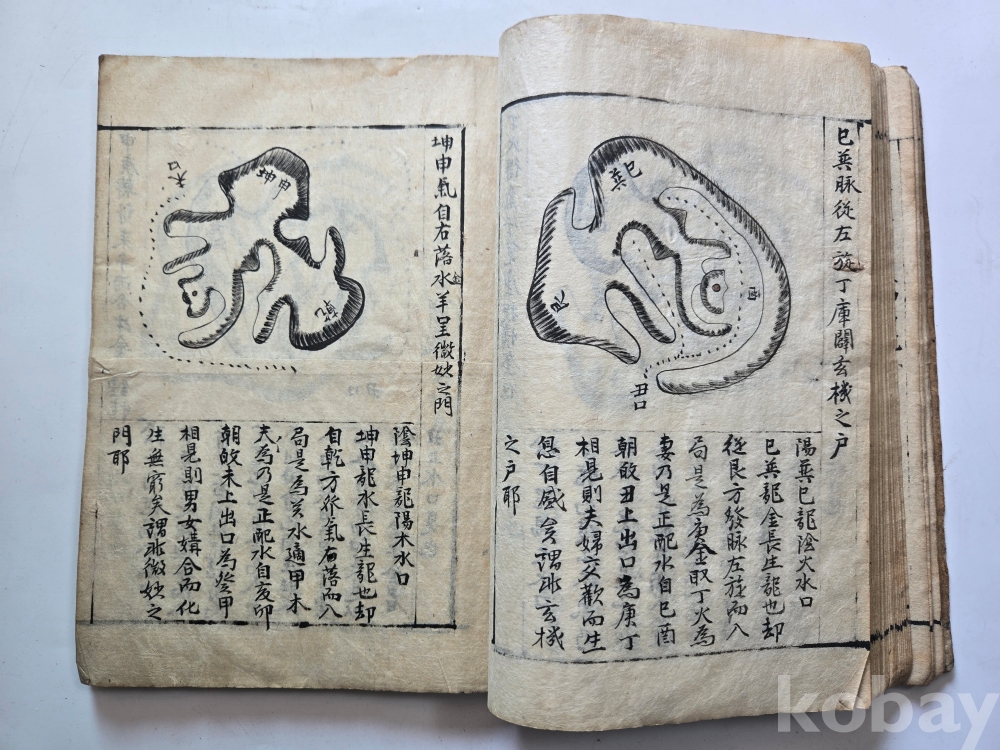 巳巽脉從左旋丁庫闢玄機之户
巽巳
艮
酉
丑口
陽巽巳龍陰火水口
巳巽龍金長生龍也却
從艮方發脉左旋而入
局是為庚金取丁火為
妻乃是正配水自巳酉
朝故丑上出口為庚丁
相見則夫婦交歡而生
息自盛矣謂非玄機
之户耶
坤申氣自右落水羊呈微妙之門
坤申
未口
乾
陰坤申龍陽木水口
坤申龍水長生龍也却
自乾方發氣右落而入
局是為癸水適甲木
夫為乃是正配水自亥卯
朝故未上出口為癸甲
相見則男女媾合而化
生無窮矣謂非微妙之
門耶
kobay